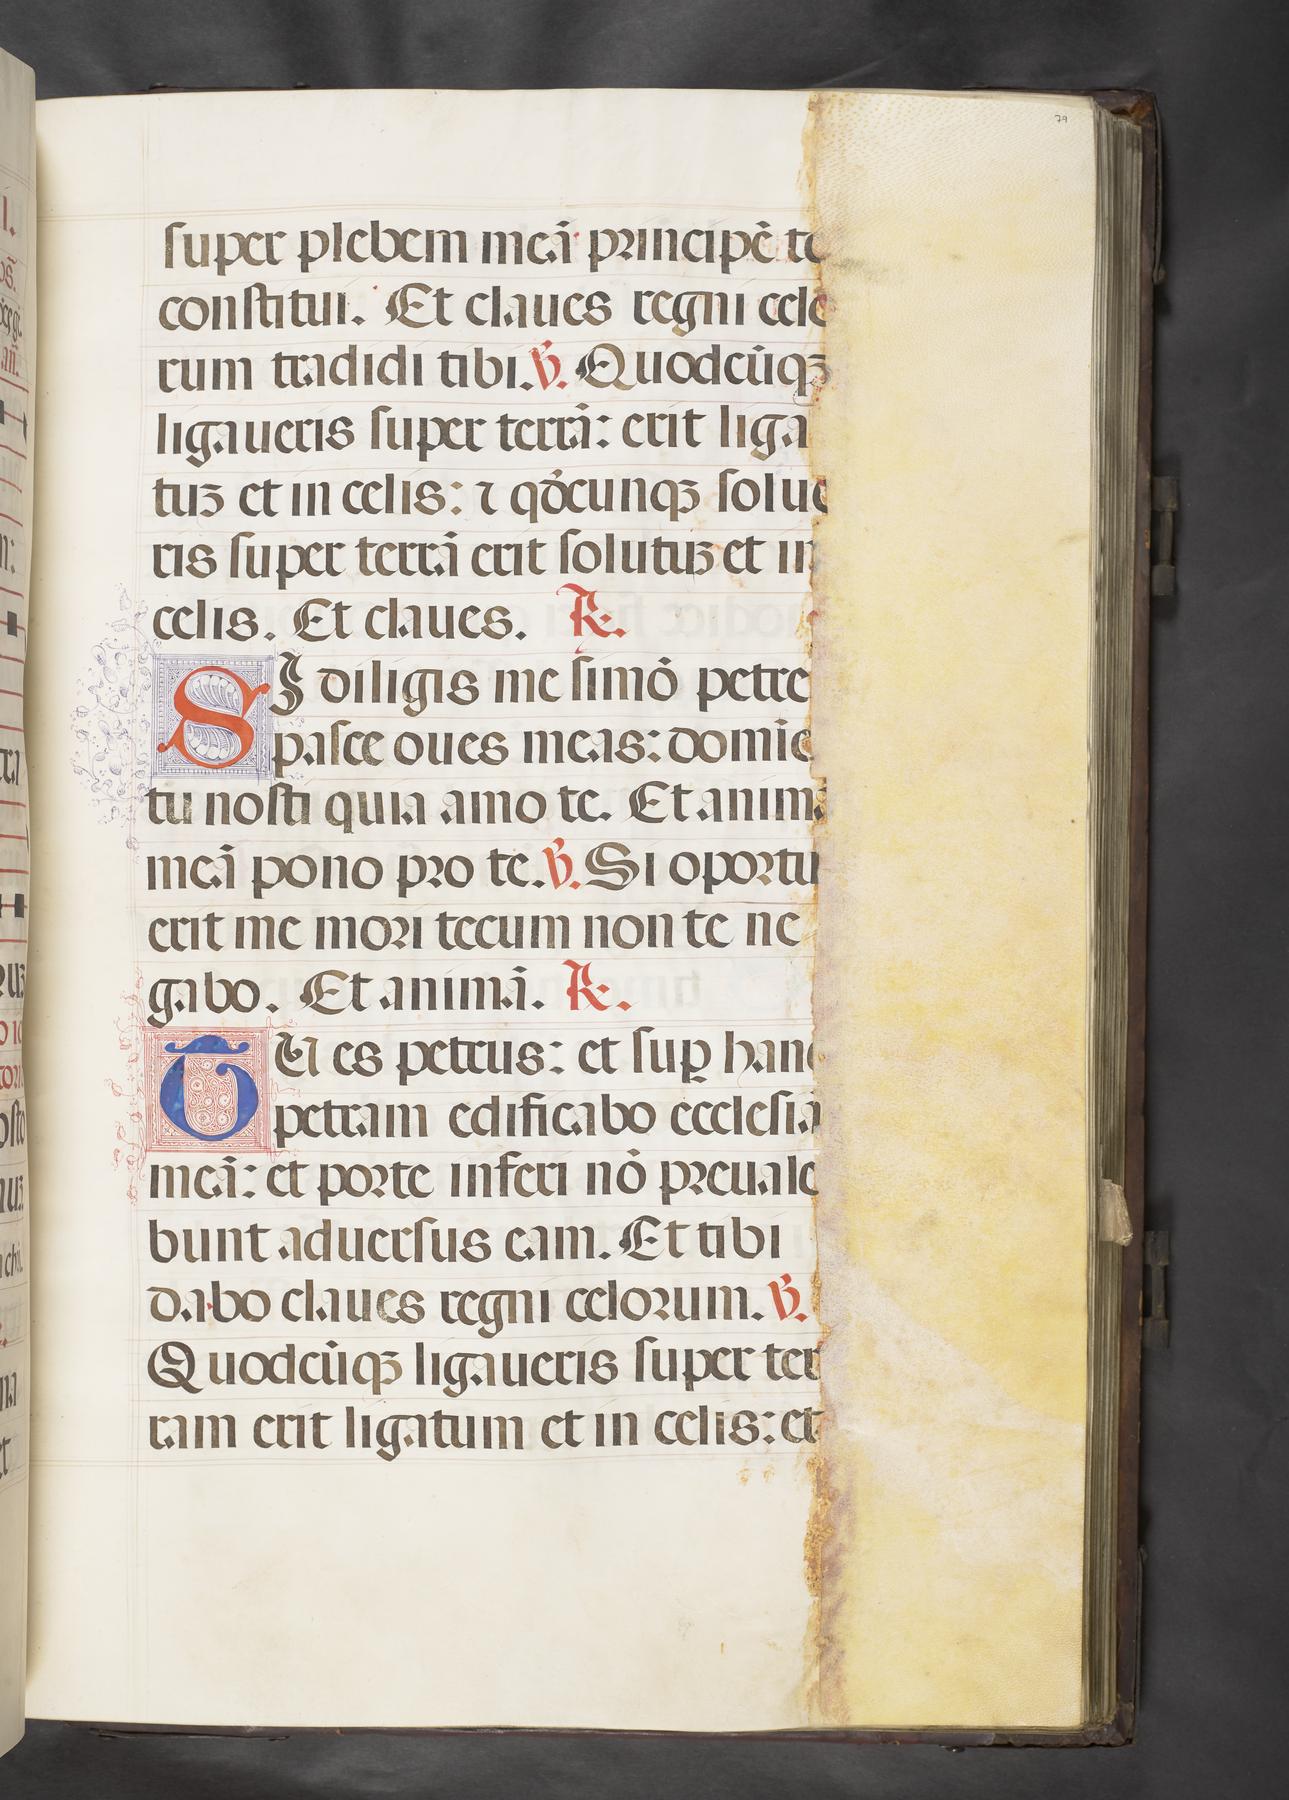 79
super plebem meā principē te
constitui. Et claues regni celo
rum tradidi tibi. ℣. Quodcūqꝫ
ligaueris super terrā: erit liga
tuꝫ et in celis: ⁊ qd̄cunqꝫ solue
ris super terrā erit solutuꝫ et in
celis. Et claues. ℟.
SI diligis me simō petre
pasce oues meas: domīe
tu nosti quia amo te. Et animā
meā pono pro te. ℣. Si oportu
erit me mori tecum non te ne
gabo. Et animā. ℟.
TU es petrus: et suꝑ hanc
petram edificabo ecclesiā
meā: et porte inferi nō preuale
bunt aduersus eam. Et tibi
dabo claues regni celorum. ℣.
Quodcūqꝫ ligaueris super ter
ram erit ligatum et in celis: et